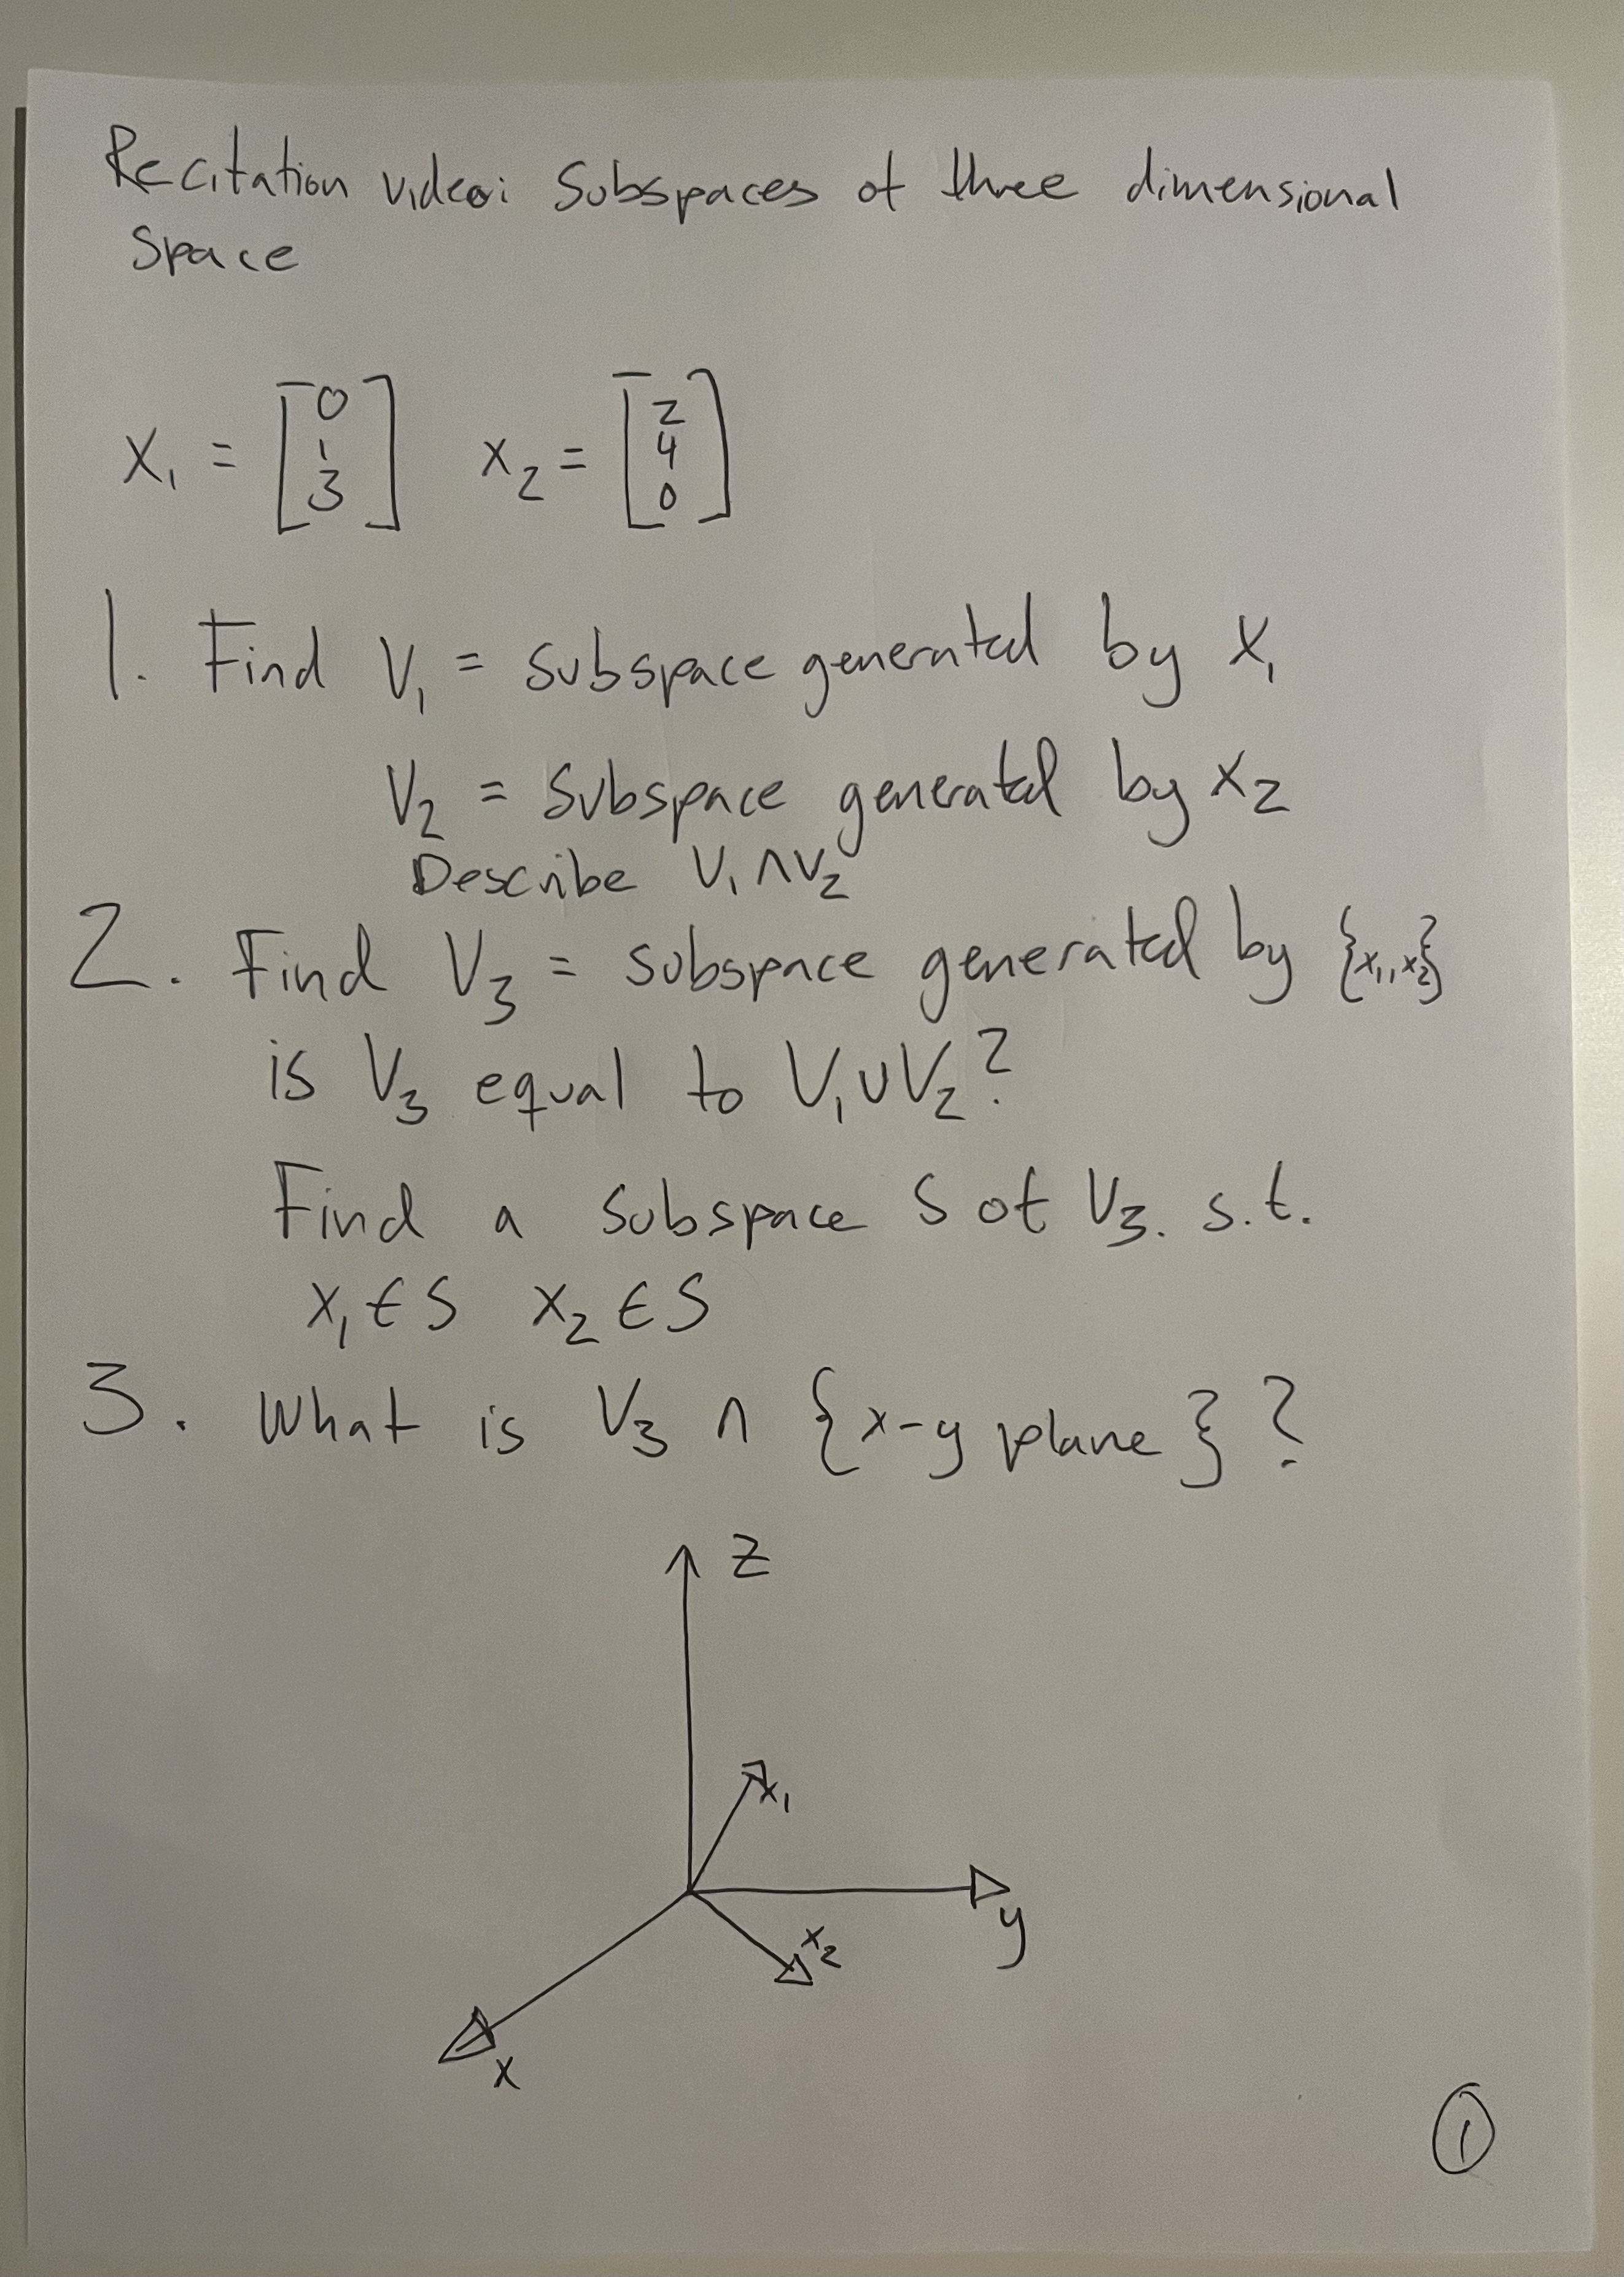 Recitation video: Subspaces of three dimensional
Space
x₁ = [0 1 3] x₂ = [2 4 0]
1. Find V₁ = subspace generated by x₁
V₂ = Subspace generated by x₂
Describe V₁ ∩ V₂
2. Find V₃ = subspace generated by {x₁, x₂}
is V₃ equal to V₁ ∪ V₂?
Find a subspace S of V₃. s.t.
x₁ ∈ S x₂ ∈ S
3. What is V₃ ∩ {x-y plane}?
z
x₁
x₂
y
x
1